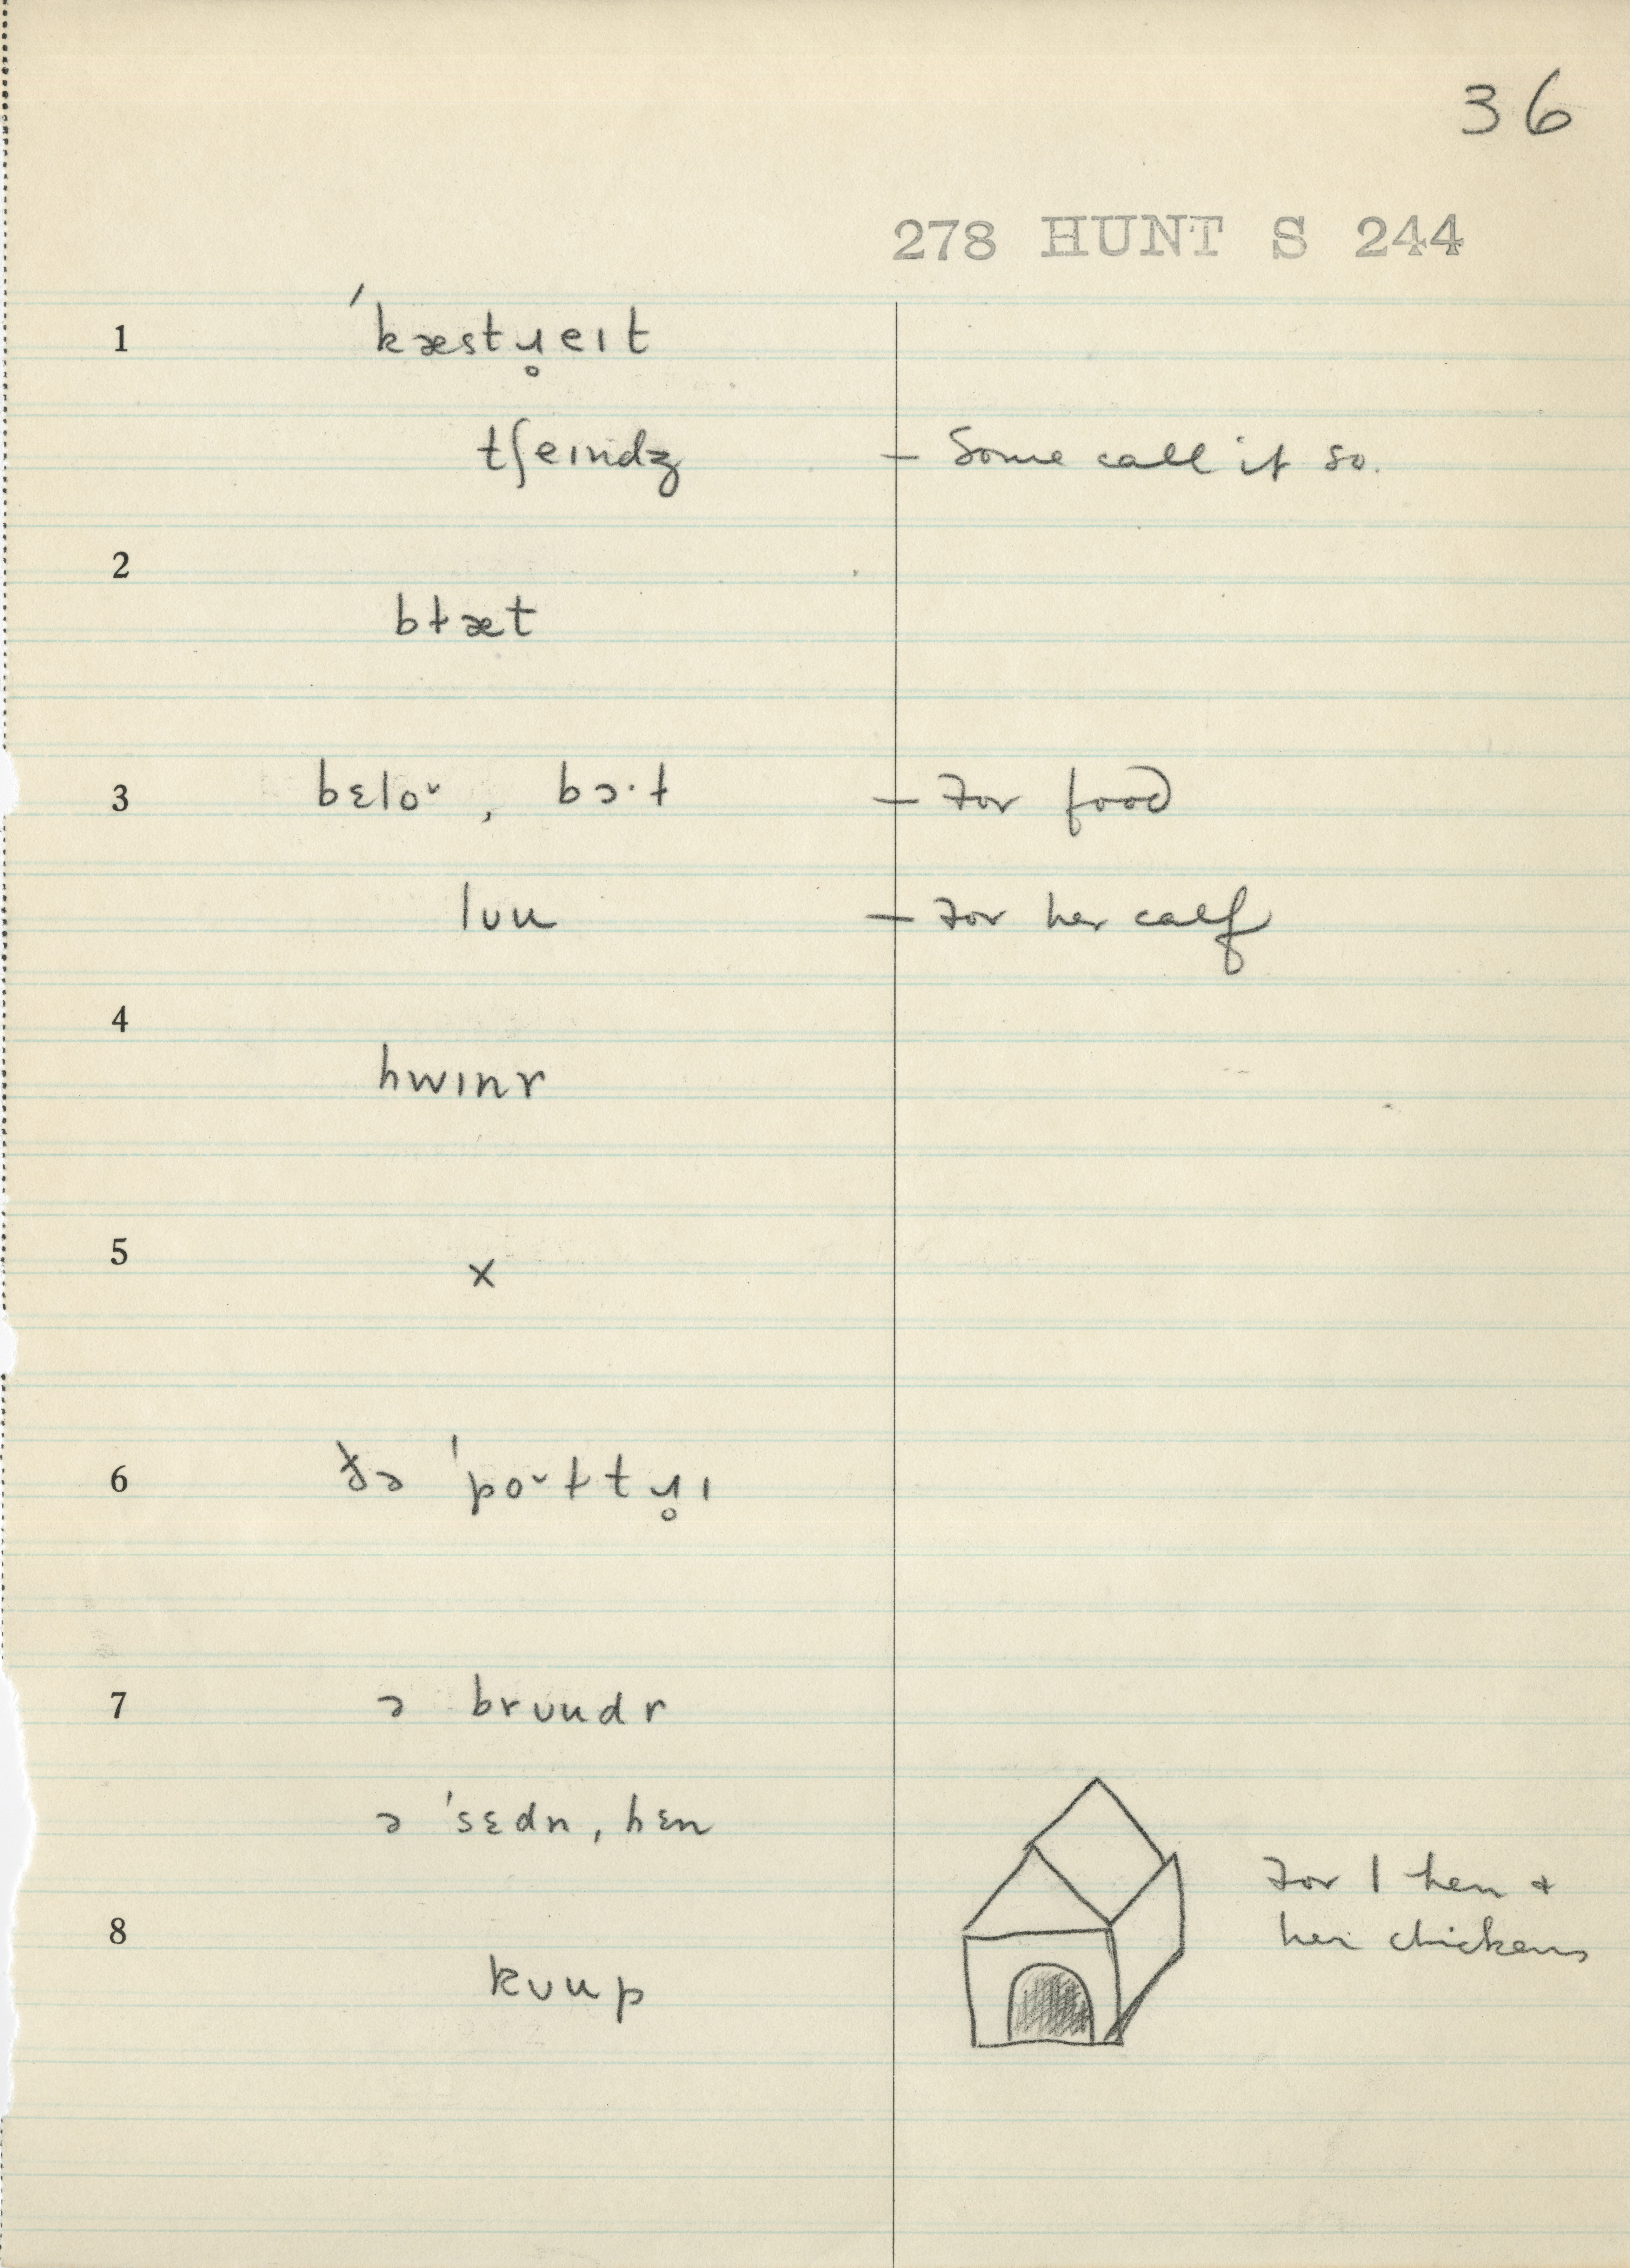 36
278 HUNT S 244
1 ˈkæstɹ̥eɪt
tʃeɪndʒ — Some call it so.
2
bɫæt
3 bɛloᵕ, bɔ·ɫ — For food
lʊu — For her calf
4
hwɪnr
5
x
6 ðə ˈpoᵕɫtɹ̥ɪ
7 ə brʊudr
ə ˈsɛdn, hɛn
For 1 hen +
her chickens
8
kʊup